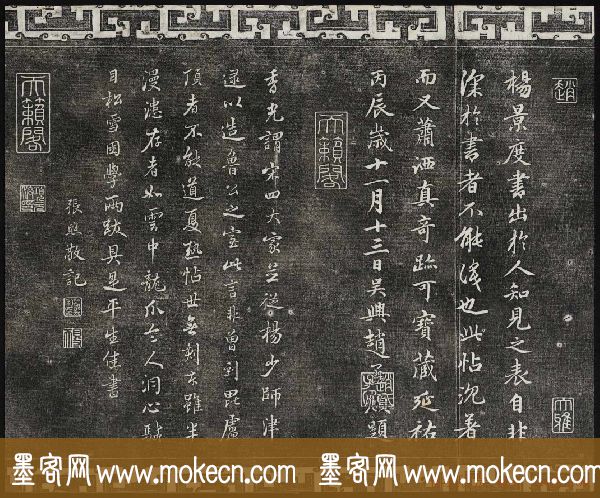 楊景度書出於人知見之表自非
深於書者不能識也此帖沉著
而又蕭洒真奇跡可寶藏延祐
丙辰歲十一月十三日吳興趙子昂題
香光謂宋四大家並從楊少師津
遂以造魯公之室此言非曾到毘盧
頂者不能道夏熱帖世無刻本雖半
漫漶存者如雲中龍爪令人洞心駭
目松雪困學兩跋具是平生佳書
張照敬記
趙
天籟閣
天籟閣
大雅
墨客网 www.mokecn.com 墨客网 www.mokecn.com